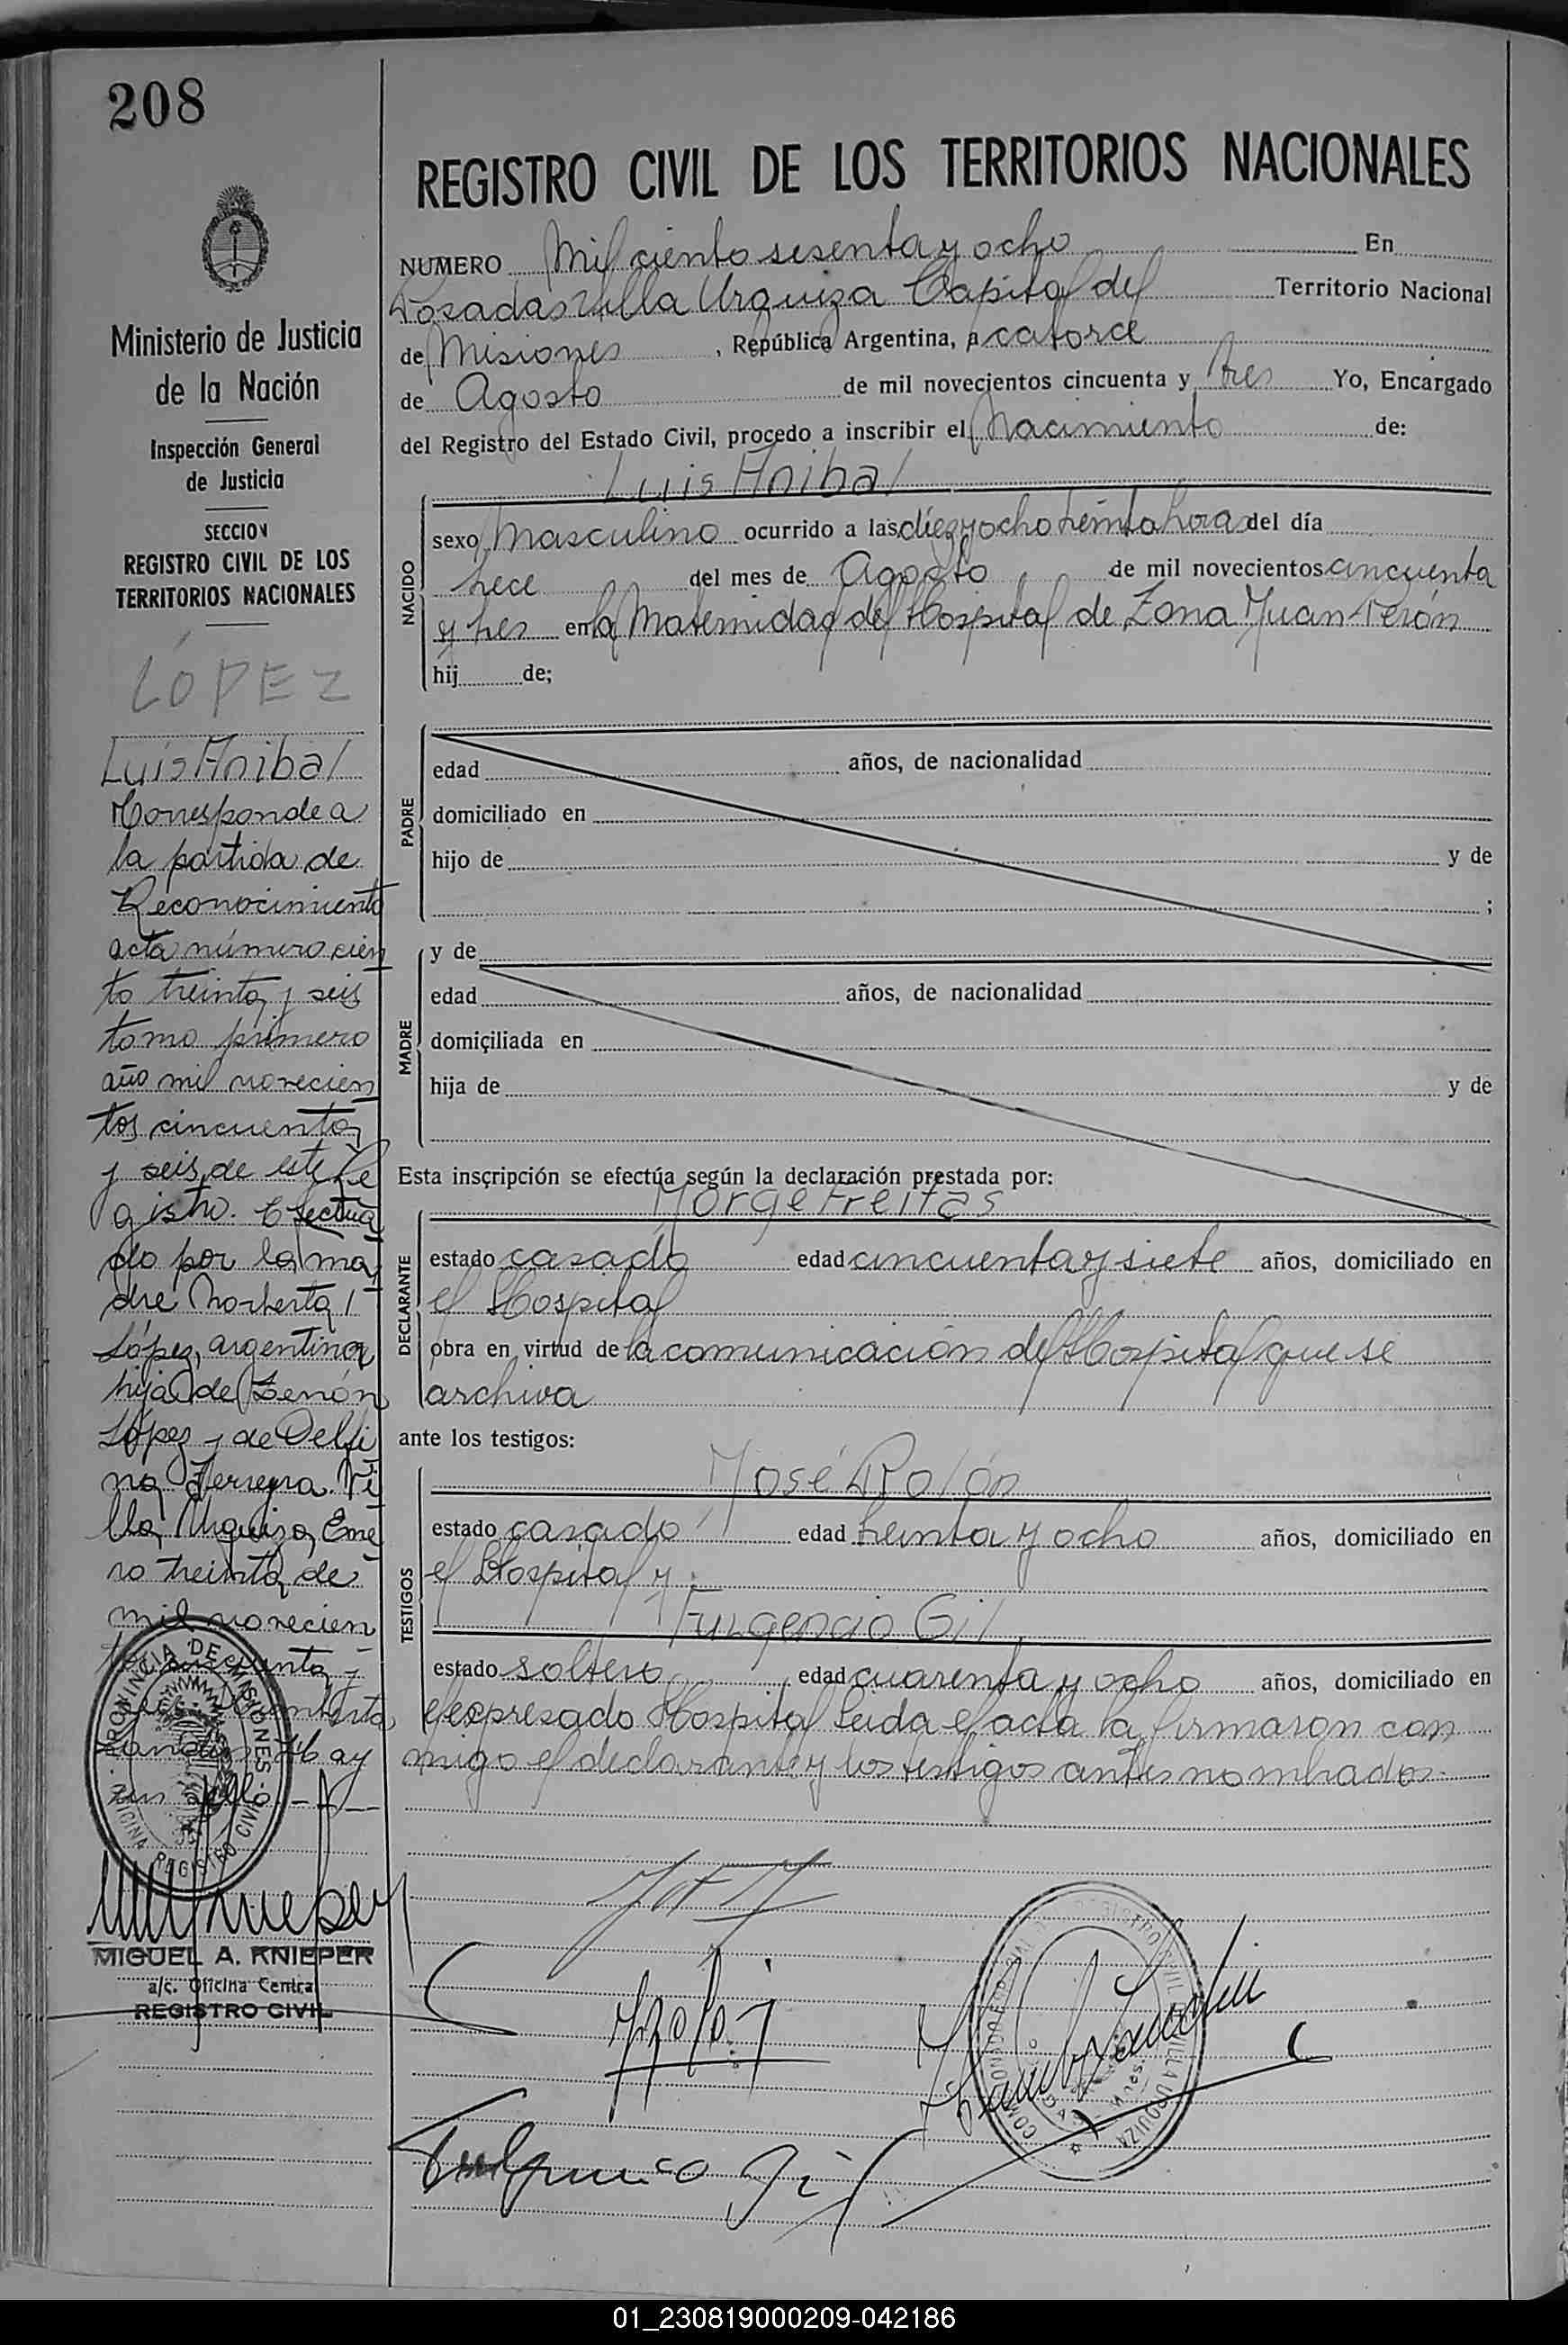 208
Ministerio de Justicia
de la Nación
Inspección General
de Justicia
SECCION
REGISTRO CIVIL DE LOS
TERRITORIOS NACIONALES
LÓPEZ
Luis Anibal
Corresponde a
la partida de
Reconocimiento
acta número cien
to treinta y seis
tomo primero
año mil novecien
tos cincuenta
y seis de este Re
gistro. Efectua
do por la ma
dre Norberta I
López, argentina
hija de Zenón
López y de Delfi
na Ferreyra. Vi
lla Urquiza, Ene
ro treinta de
mil novecien
tos cincuenta y
Hay
un sello. -
PROVINCIA DE MISIONES
OFICINA REGISTRO CIVIL
MIGUEL A. KNIEPER
a/c. Oficina Central
REGISTRO CIVIL
REGISTRO CIVIL DE LOS TERRITORIOS NACIONALES
NUMERO Mil ciento sesenta y ocho En
Posadas Villa Urquiza Capital del Territorio Nacional
de Misiones , República Argentina, a catorce
de Agosto de mil novecientos cincuenta y tres Yo, Encargado
del Registro del Estado Civil, procedo a inscribir el Nacimiento de:
Luis Anibal
NACIDO
sexo Masculino ocurrido a las diez y ocho treinta horas del día
trece del mes de Agosto de mil novecientos cincuenta
y tres en la Maternidad del Hospital de Zona Juan Perón
hij de;
PADRE
edad años, de nacionalidad
domiciliado en
hijo de y de
;
MADRE
y de
edad años, de nacionalidad
domiciliada en
hija de y de
Esta inscripción se efectúa según la declaración prestada por:
Jorge Freitas
DECLARANTE
estado casado edad cincuenta y siete años, domiciliado en
el Hospital
obra en virtud de la comunicación del Hospital que se
archiva
ante los testigos:
José Rolón
TESTIGOS
estado casado edad treinta y ocho años, domiciliado en
el Hospital y
Fulgencio Gil
estado soltero edad cuarenta y ocho años, domiciliado en
el expresado Hospital Leida el acta la firmaron con
migo el declarante y los testigos antes nombrados.-
Fulgencio Gil
VILLA URQUIZA
01_230819000209-042186